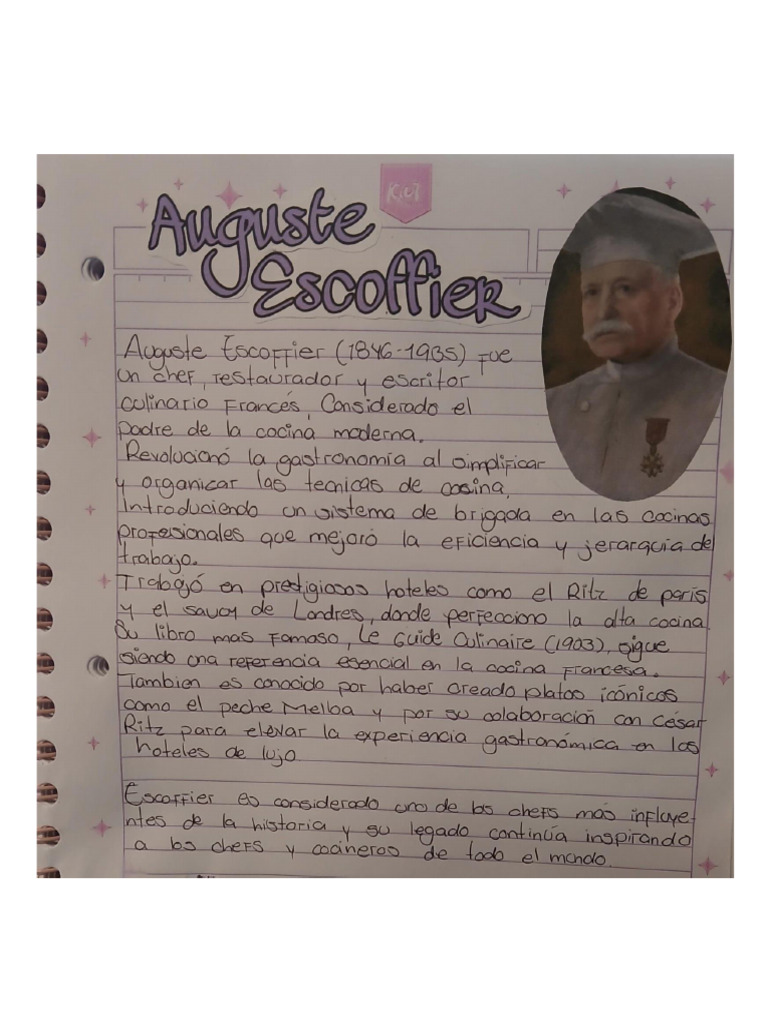 Auguste
Escoffier
Auguste Escoffier (1846-1935) fue
un chef, restaurador y escritor
culinario Francés, Considerado el
padre de la cocina moderna.
Revolucionó la gastronomía al simplificar
y organizar las tecnicas de cosina.
Introduciendo un sistema de brigada en las cocinas
profesionales que mejoró la eficiencia y jerarquia del
trabajo.
Trabagó en prestigiosos hoteles como el Ritz de paris
y el savoy de Londres, donde perfecciono la alta cocina.
Su libro mas Famoso, Le Guide Culinaire (1903), sigue
siendo una referencia esencial en la cocina francesa.
Tambien es conocido por haber creado platos icónicos
como el peche Melba y por su colaboración con César
Ritz para elevar la experiencia gastronómica en los
hoteles de lujo.
Escoffier es considerado uno de los chefs más influye-
ntes de la historia y su legado continúa inspirando
a los chefs y cocineros de todo el mundo.